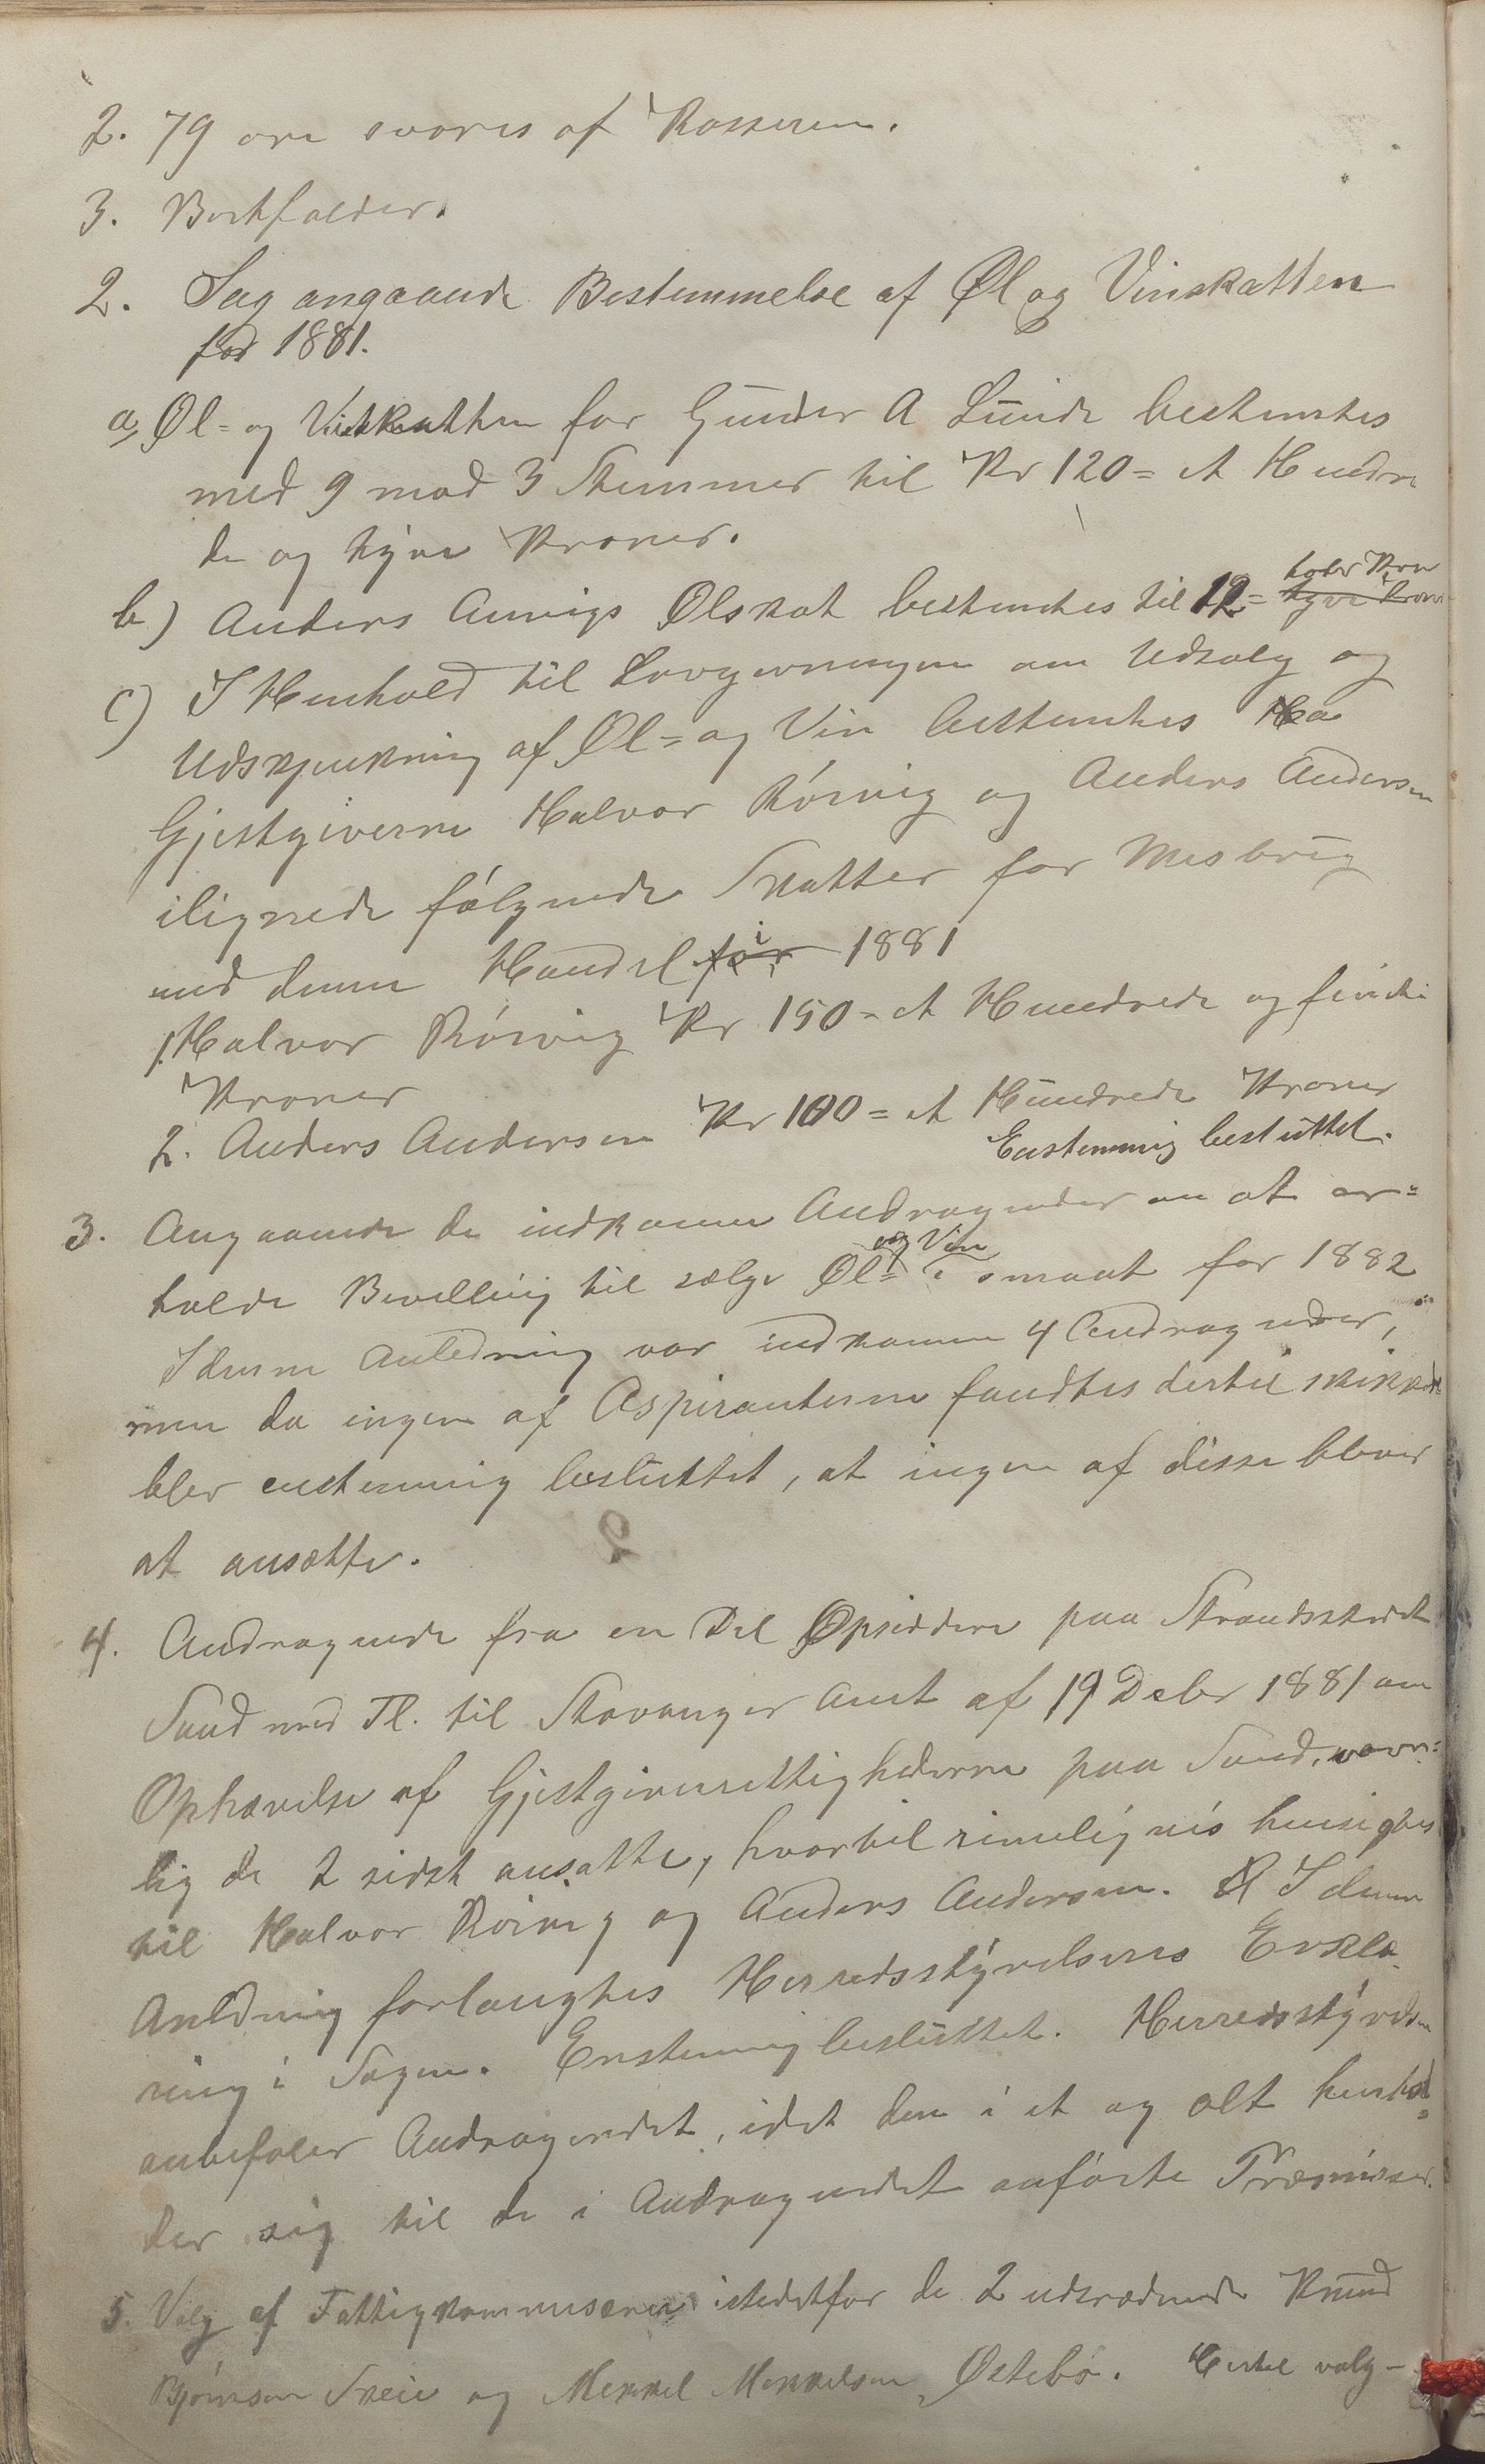 2. 79 øre svares af Kasseren.
3. Bortfalder.
2. Sag angaaende Bestemmelse af Øl og Vinskatten
for 1881.
a, Øl= og Vinskatten for Gunder A Lunde bestemtes
med 9 mod 3 Stemmer til Kr 120= et Hundre
de og tyve Kroner.
b) Anders Aarvigs Ølskat bestemtes til 12= tolv Kron
tyve Kroner
c) I Henhold til Lovgivningen om Udsalg og
Udskjænkning af Øl= og Vin bestemtes
Gjestgiverne Halvor Rörvig og Anders Andersen
ilignede følgende Skatter for Misbrug
med denne Handel for i 1881
1. Halvor Rörvig Kr 150= et Hundrede og femti
Kroner
2. Anders Andersen Kr 100= et Hundrede Kroner
Enstemmig besluttet.
3. Angaaende de indkomne Andragender om at er=
holde Bevilling til sælge Øl= og Vin i smaat for 1882
I denne Anledning var indkommen 4 Andragender,
men da ingen af Aspiranterne fandtes dertil skikkede
blev enstemmig besluttet, at ingen af disse bliver
at ansætte.
4. Andragende fra en Del Opsiddere paa Strandstedet
Sand med Fl. til Stavanger Amt af 19 Decbr 1881 om
Ophævelse af Gjestgiverrettighederne paa Sand, navn=
lig de 2 sidst ansatte, hvortil rimeligvis hensigtes
til Halvor Rörvig og Anders Andersen. I denne
Anledning forlangtes Herredsstyrelsens Erklæ
ring i Sagen. Enstemmig besluttet. Herredsstyrelsen
anbefaler Andragendet, idet den i et og alt henhol=
der sig til de i Andragendet anførte Præmisser.
5. Valg af Fattigkommisærer istedetfor de 2 udtrædende Knud
Bjørnsen Sveie og Mekkel Mekkelsen Østebø. Hertil valg-